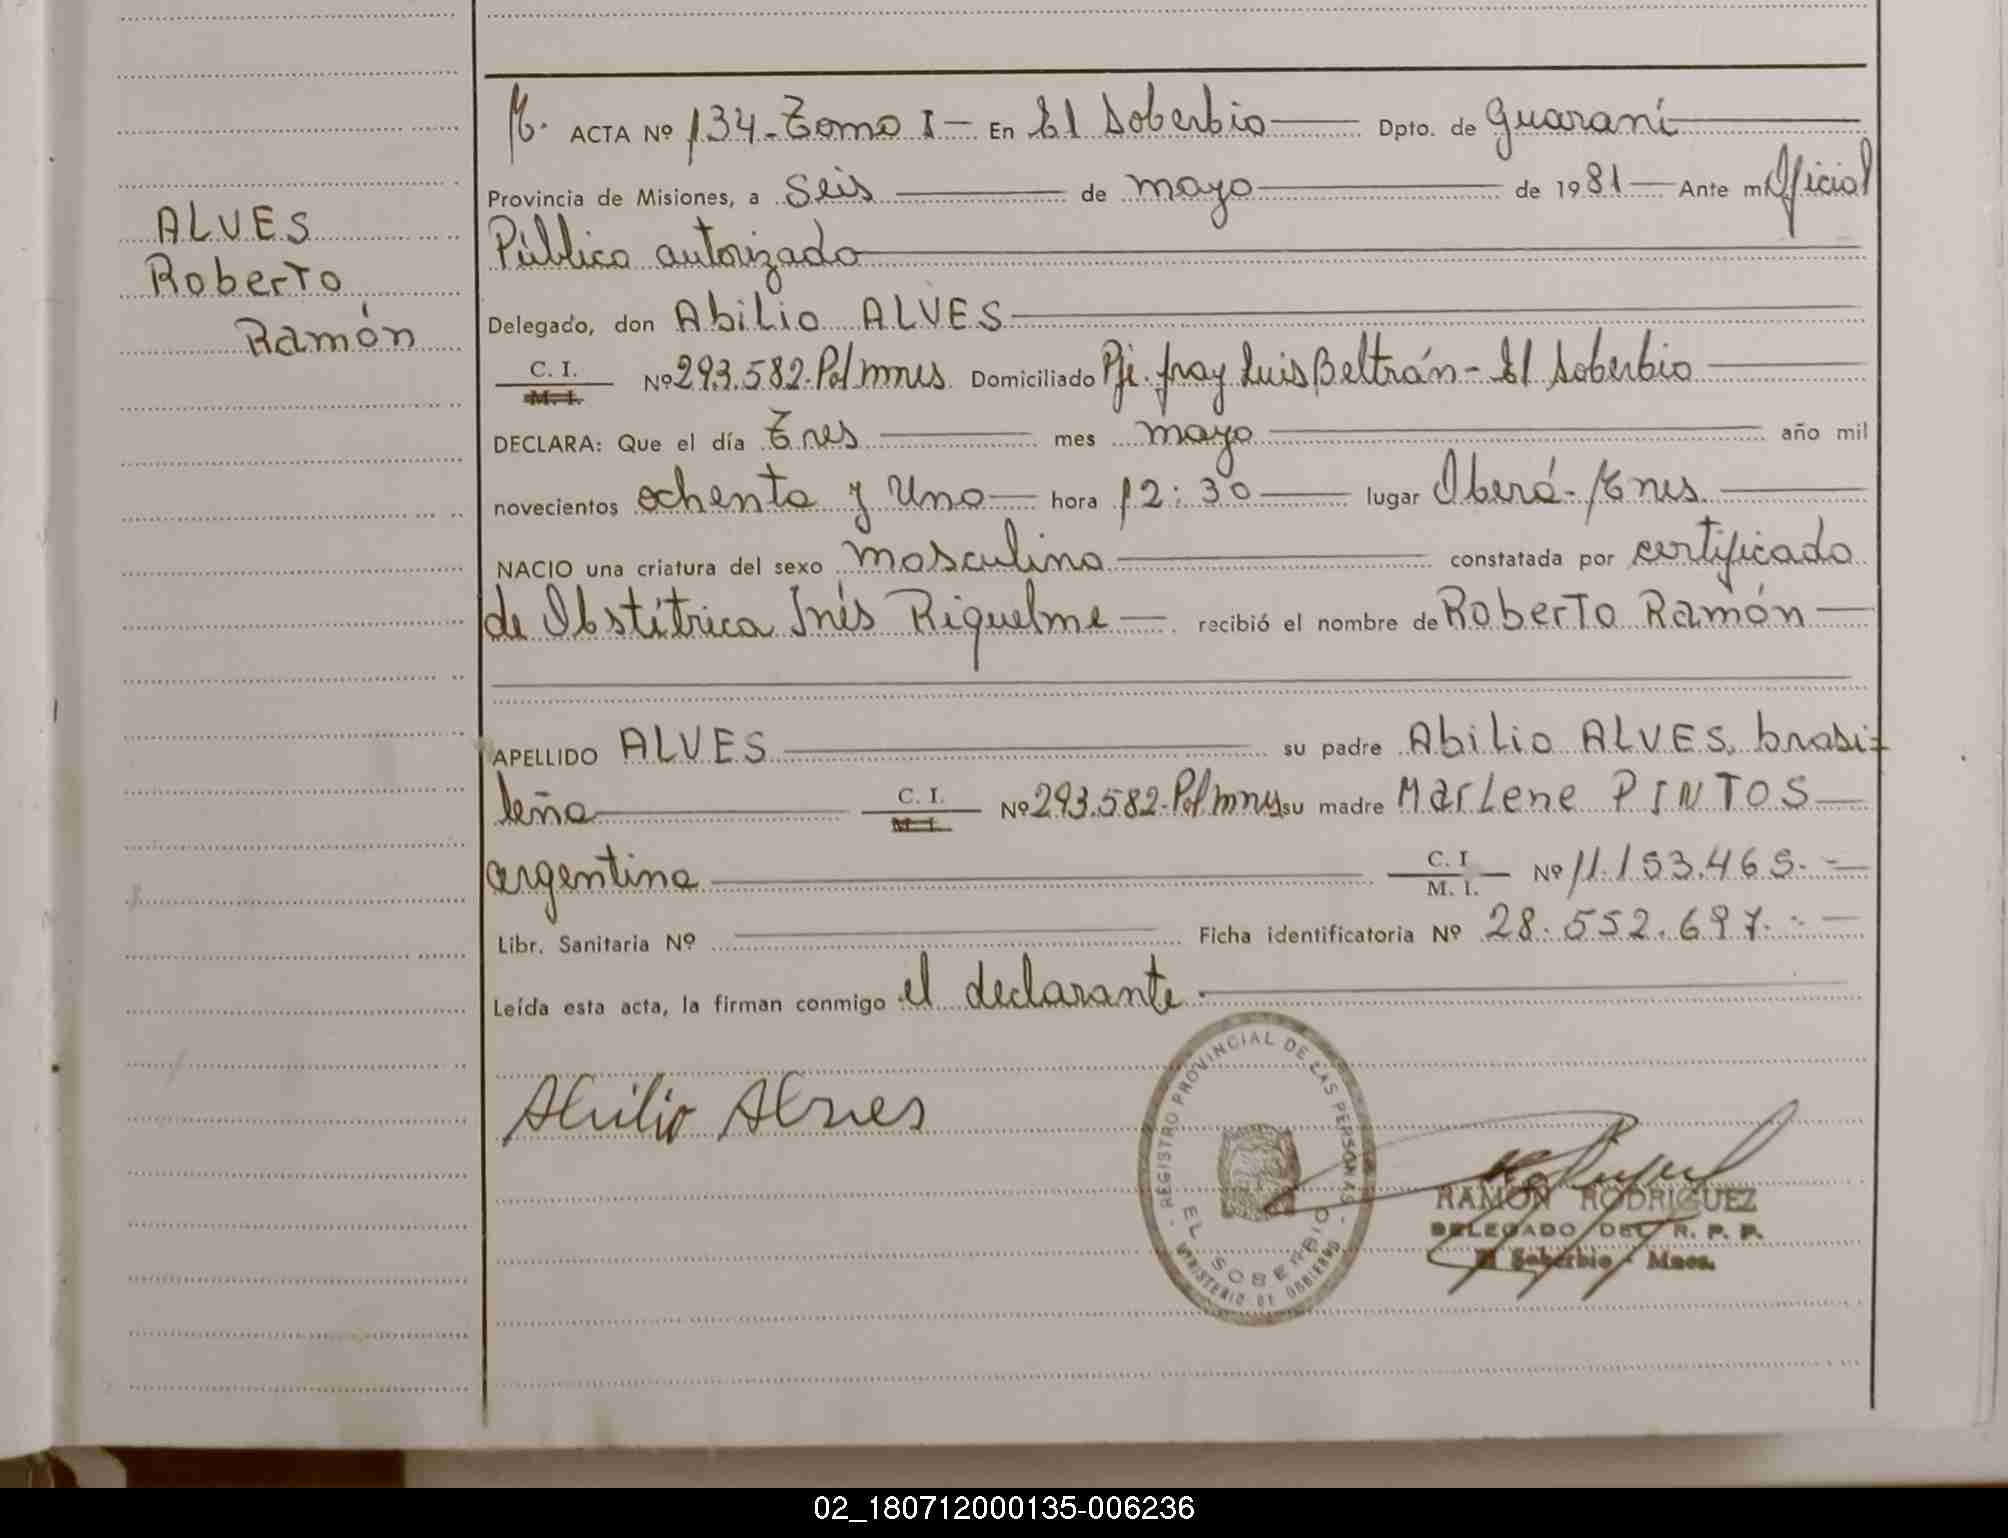 ALVES
Roberto
Ramón
M. ACTA Nº 134-Tomo I- En El Soberbio Dpto. de Guaraní
Provincia de Misiones, a Seis de mayo de 1981 Ante mi Oficial
Público autorizado
Delegado, don Abilio ALVES
C. I.
M. I.
Nº 293.582-Pol mnes Domiciliado Pje. fray Luis Beltrán - El Soberbio
DECLARA: Que el día Tres mes mayo año mil
novecientos ochenta y Uno hora 12:30 lugar Oberá-Mnes.
NACIO una criatura del sexo masculino constatada por certificado
de Obstétrica Inés Riquelme recibió el nombre de Roberto Ramón
APELLIDO ALVES su padre Abilio ALVES, brasi-
leño C. I. M. I. Nº 293.582-Pol mnes su madre Marlene PINTOS
argentina C. I. M. I. Nº 11.153.465.-
Libr. Sanitaria Nº Ficha identificatoria Nº 28.552.697.-
Leída esta acta, la firman conmigo el declarante.
Abilio Alves
REGISTRO PROVINCIAL DE LAS PERSONAS
EL SOBERBIO
MINISTERIO DE GOBIERNO
RAMON RODRIGUEZ
DELEGADO DEL R. P. P.
El Soberbio - Mnes.
02_180712000135-006236